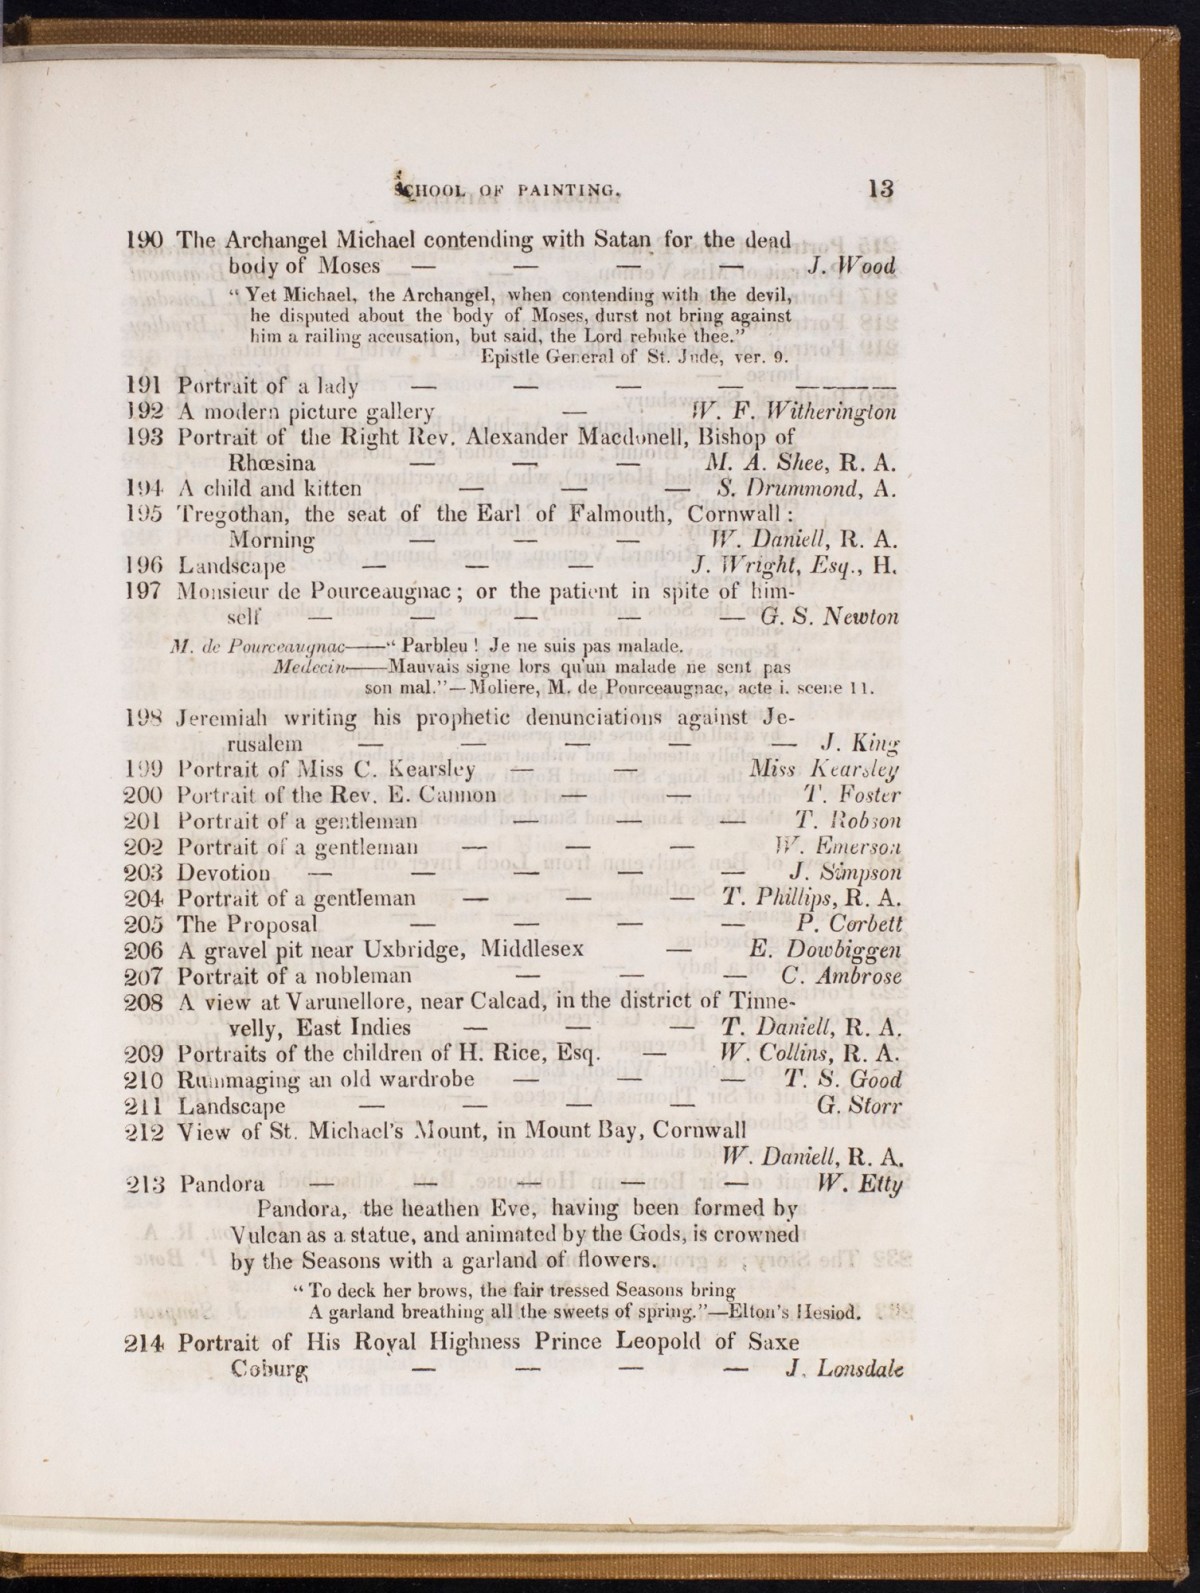 SCHOOL OF PAINTING. 13
190 The Archangel Michael contending with Satan for the dead
body of Moses — — — — J. Wood
“ Yet Michael, the Archangel, when contending with the devil,
he disputed about the body of Moses, durst not bring against
him a railing accusation, but said, the Lord rebuke thee.”
Epistle General of St. Jude, ver. 9.
191 Portrait of a lady — — — — ————
192 A modern picture gallery — W. F. Witherington
193 Portrait of the Right Rev. Alexander Macdonell, Bishop of
Rhœsina — — — M. A. Shee, R. A.
194 A child and kitten — — — S. Drummond, A.
195 Tregothan, the seat of the Earl of Falmouth, Cornwall :
Morning — — — W. Daniell, R. A.
196 Landscape — — — J. Wright, Esq., H.
197 Monsieur de Pourceaugnac ; or the patient in spite of him-
self — — — — — G. S. Newton
M. de Pourceaugnac——“ Parbleu ! Je ne suis pas malade.
Medecin——Mauvais signe lors qu'un malade ne sent pas
son mal.”—Moliere, M. de Pourceaugnac, acte i. scene 11.
198 Jeremiah writing his prophetic denunciations against Je-
rusalem — — — — — J. King
199 Portrait of Miss C. Kearsley — — Miss Kearsley
200 Portrait of the Rev. E. Cannon — — T. Foster
201 Portrait of a gentleman — — — T. Robson
202 Portrait of a gentleman — — — W. Emerson
203 Devotion — — — — — J. Simpson
204 Portrait of a gentleman — — — T. Phillips, R. A.
205 The Proposal — — — — P. Corbett
206 A gravel pit near Uxbridge, Middlesex — E. Dowbiggen
207 Portrait of a nobleman — — — C. Ambrose
208 A view at Varunellore, near Calcad, in the district of Tinne-
velly, East Indies — — — T. Daniell, R. A.
209 Portraits of the children of H. Rice, Esq. — W. Collins, R. A.
210 Rummaging an old wardrobe — — — T. S. Good
211 Landscape — — — — G. Storr
212 View of St. Michael's Mount, in Mount Bay, Cornwall
W. Daniell, R. A.
213 Pandora — — — — — W. Etty
Pandora, the heathen Eve, having been formed by
Vulcan as a statue, and animated by the Gods, is crowned
by the Seasons with a garland of flowers.
“ To deck her brows, the fair tressed Seasons bring
A garland breathing all the sweets of spring.”—Elton's Hesiod.
214 Portrait of His Royal Highness Prince Leopold of Saxe
Coburg — — — — J. Lonsdale